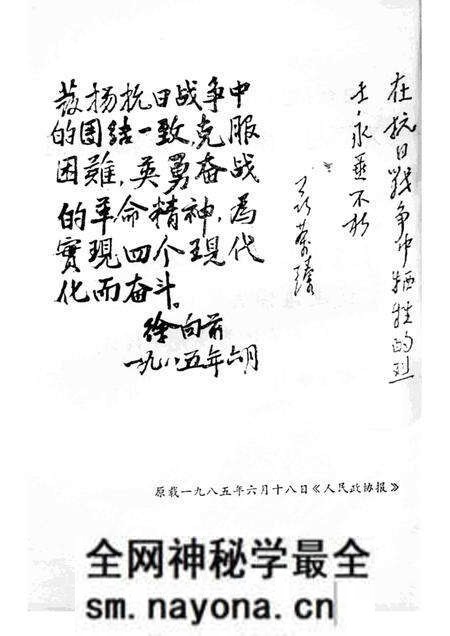 發扬抗日战争中
的团结一致,克服
困難,英勇奋战
的革命精神,為
實現四个現代
化而奋斗。
徐向前
一九八五年六月
在抗日戰争中牺牲的烈
士,永垂不朽
聂荣臻
原载一九八五年六月十八日《人民政协报》
全网神秘学最全
sm.nayona.cn